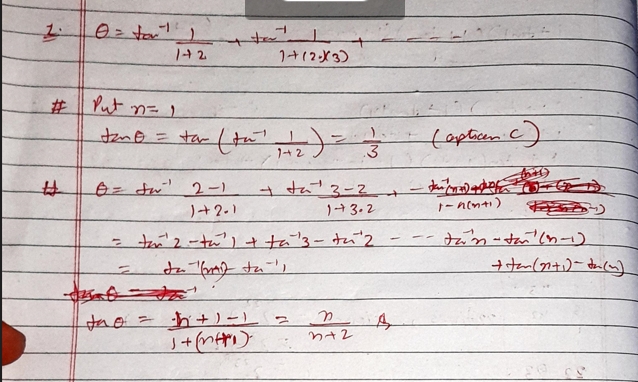 1. θ = tan⁻¹ 1/(1+2) + tan⁻¹ 1/(1+(2)(3)) + - - - - -
# Put n = 1
tan θ = tan (tan⁻¹ 1/(1+2)) = 1/3 (option C)
# θ = tan⁻¹ (2-1)/(1+2.1) + tan⁻¹ (3-2)/(1+3.2) + -
= tan⁻¹2 - tan⁻¹1 + tan⁻¹3 - tan⁻¹2 - - - tan⁻¹n - tan⁻¹(n-1)
+ tan(n+1) - tan(n)
= tan⁻¹(n+1) - tan⁻¹1
tan θ = (n+1-1)/(1+(n+1)) = n/(n+2)